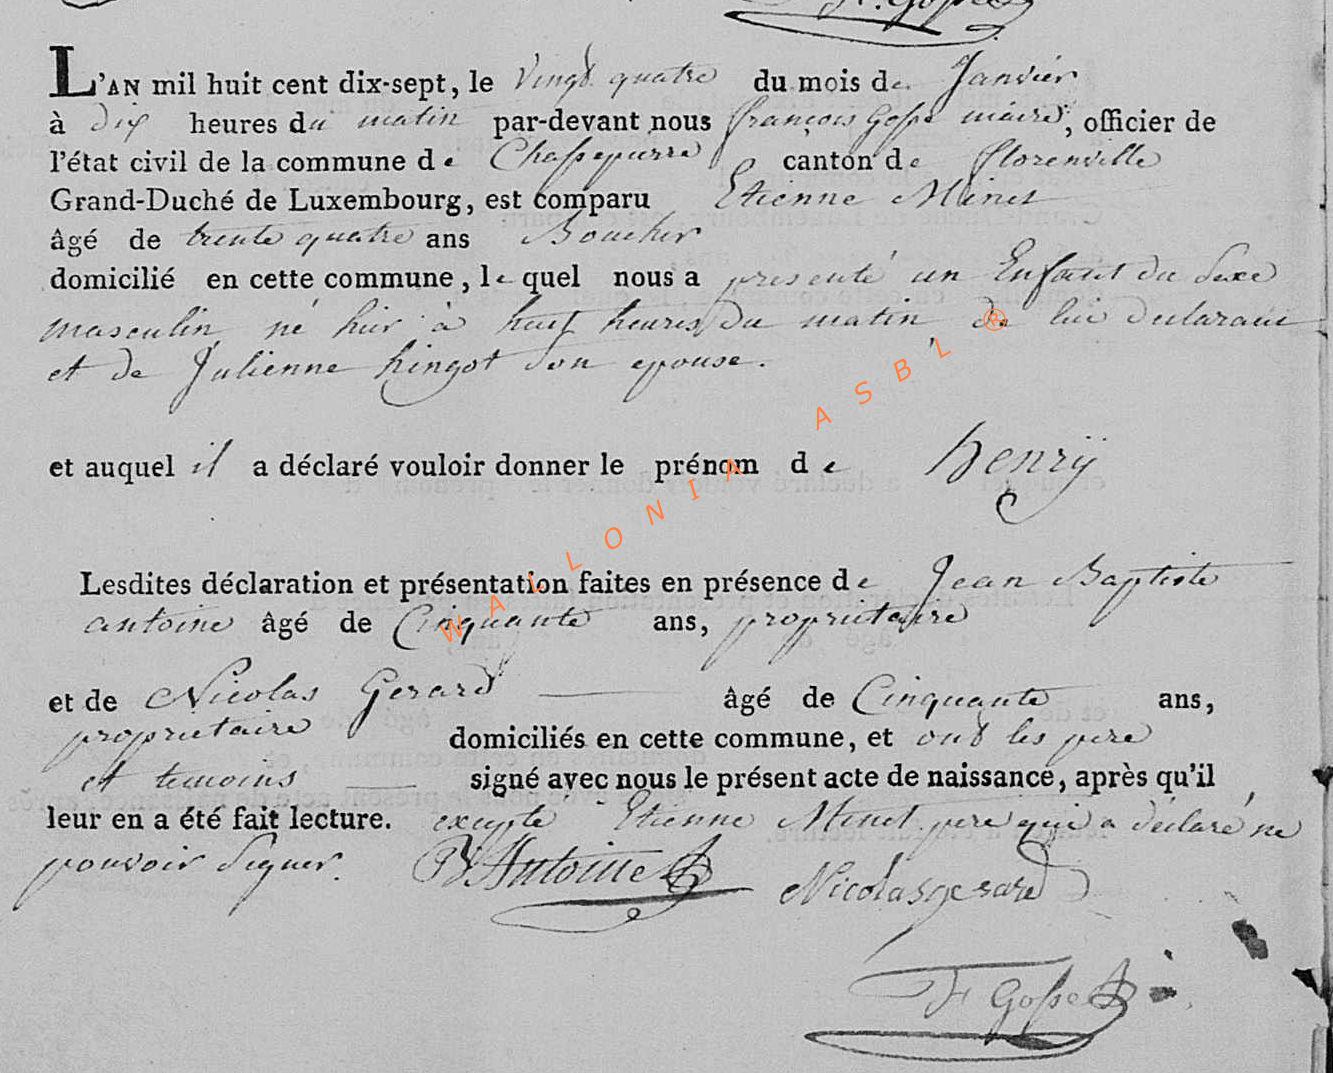 F. Gosse
L'AN mil huit cent dix-sept, le vingt quatre du mois de Janvier
à dix heures du matin par-devant nous françois Gosse maire, officier de
l'état civil de la commune de Chassepierre canton de florenville
Grand-Duché de Luxembourg, est comparu Etienne Minet
âgé de trente quatre ans Boucher
domicilié en cette commune, lequel nous a presenté un Enfant du Sexe
masculin, né hier à huit heures du matin de lui declarant
et de Julienne hingot Son epouse.
et auquel il a déclaré vouloir donner le prénom de henrÿ
Lesdites déclaration et présentation faites en présence de Jean Baptiste
antoine âgé de Cinquante ans, proprietaire
et de Nicolas Gerard âgé de Cinquante ans,
proprietaire domiciliés en cette commune, et ont les pere
et temoins signé avec nous le présent acte de naissance, après qu'il
leur en a été fait lecture. excepté Etienne Minet pere qui a déclaré ne
pouvoir Signer. JB Antoine Nicolas gerard
F Gosse
WALLONIA ASBL ®